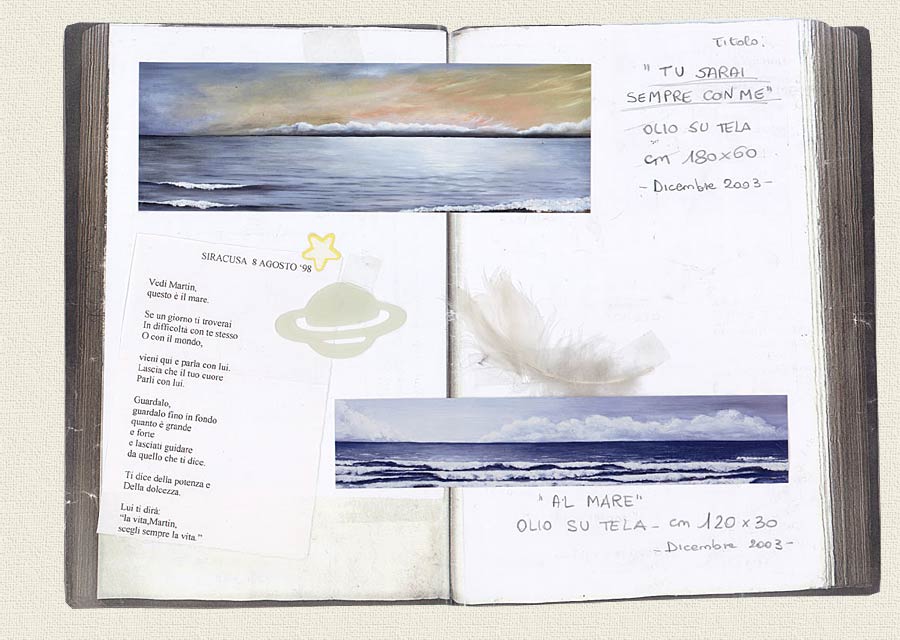 Titolo:
"TU SARAI
SEMPRE CON ME"
OLIO SU TELA
cm 180x60
- Dicembre 2003 -
SIRACUSA 8 AGOSTO '98
Vedi Martin,
questo è il mare.
Se un giorno ti troverai
In difficoltà con te stesso
O con il mondo,
vieni qui e parla con lui.
Lascia che il tuo cuore
Parli con lui.
Guardalo,
guardalo fino in fondo
quanto è grande
e forte
e lasciati guidare
da quello che ti dice.
Ti dice della potenza e
Della dolcezza.
Lui ti dirà:
"la vita,Martin,
scegli sempre la vita."
"AL MARE"
OLIO SU TELA - cm 120x30
- Dicembre 2003 -